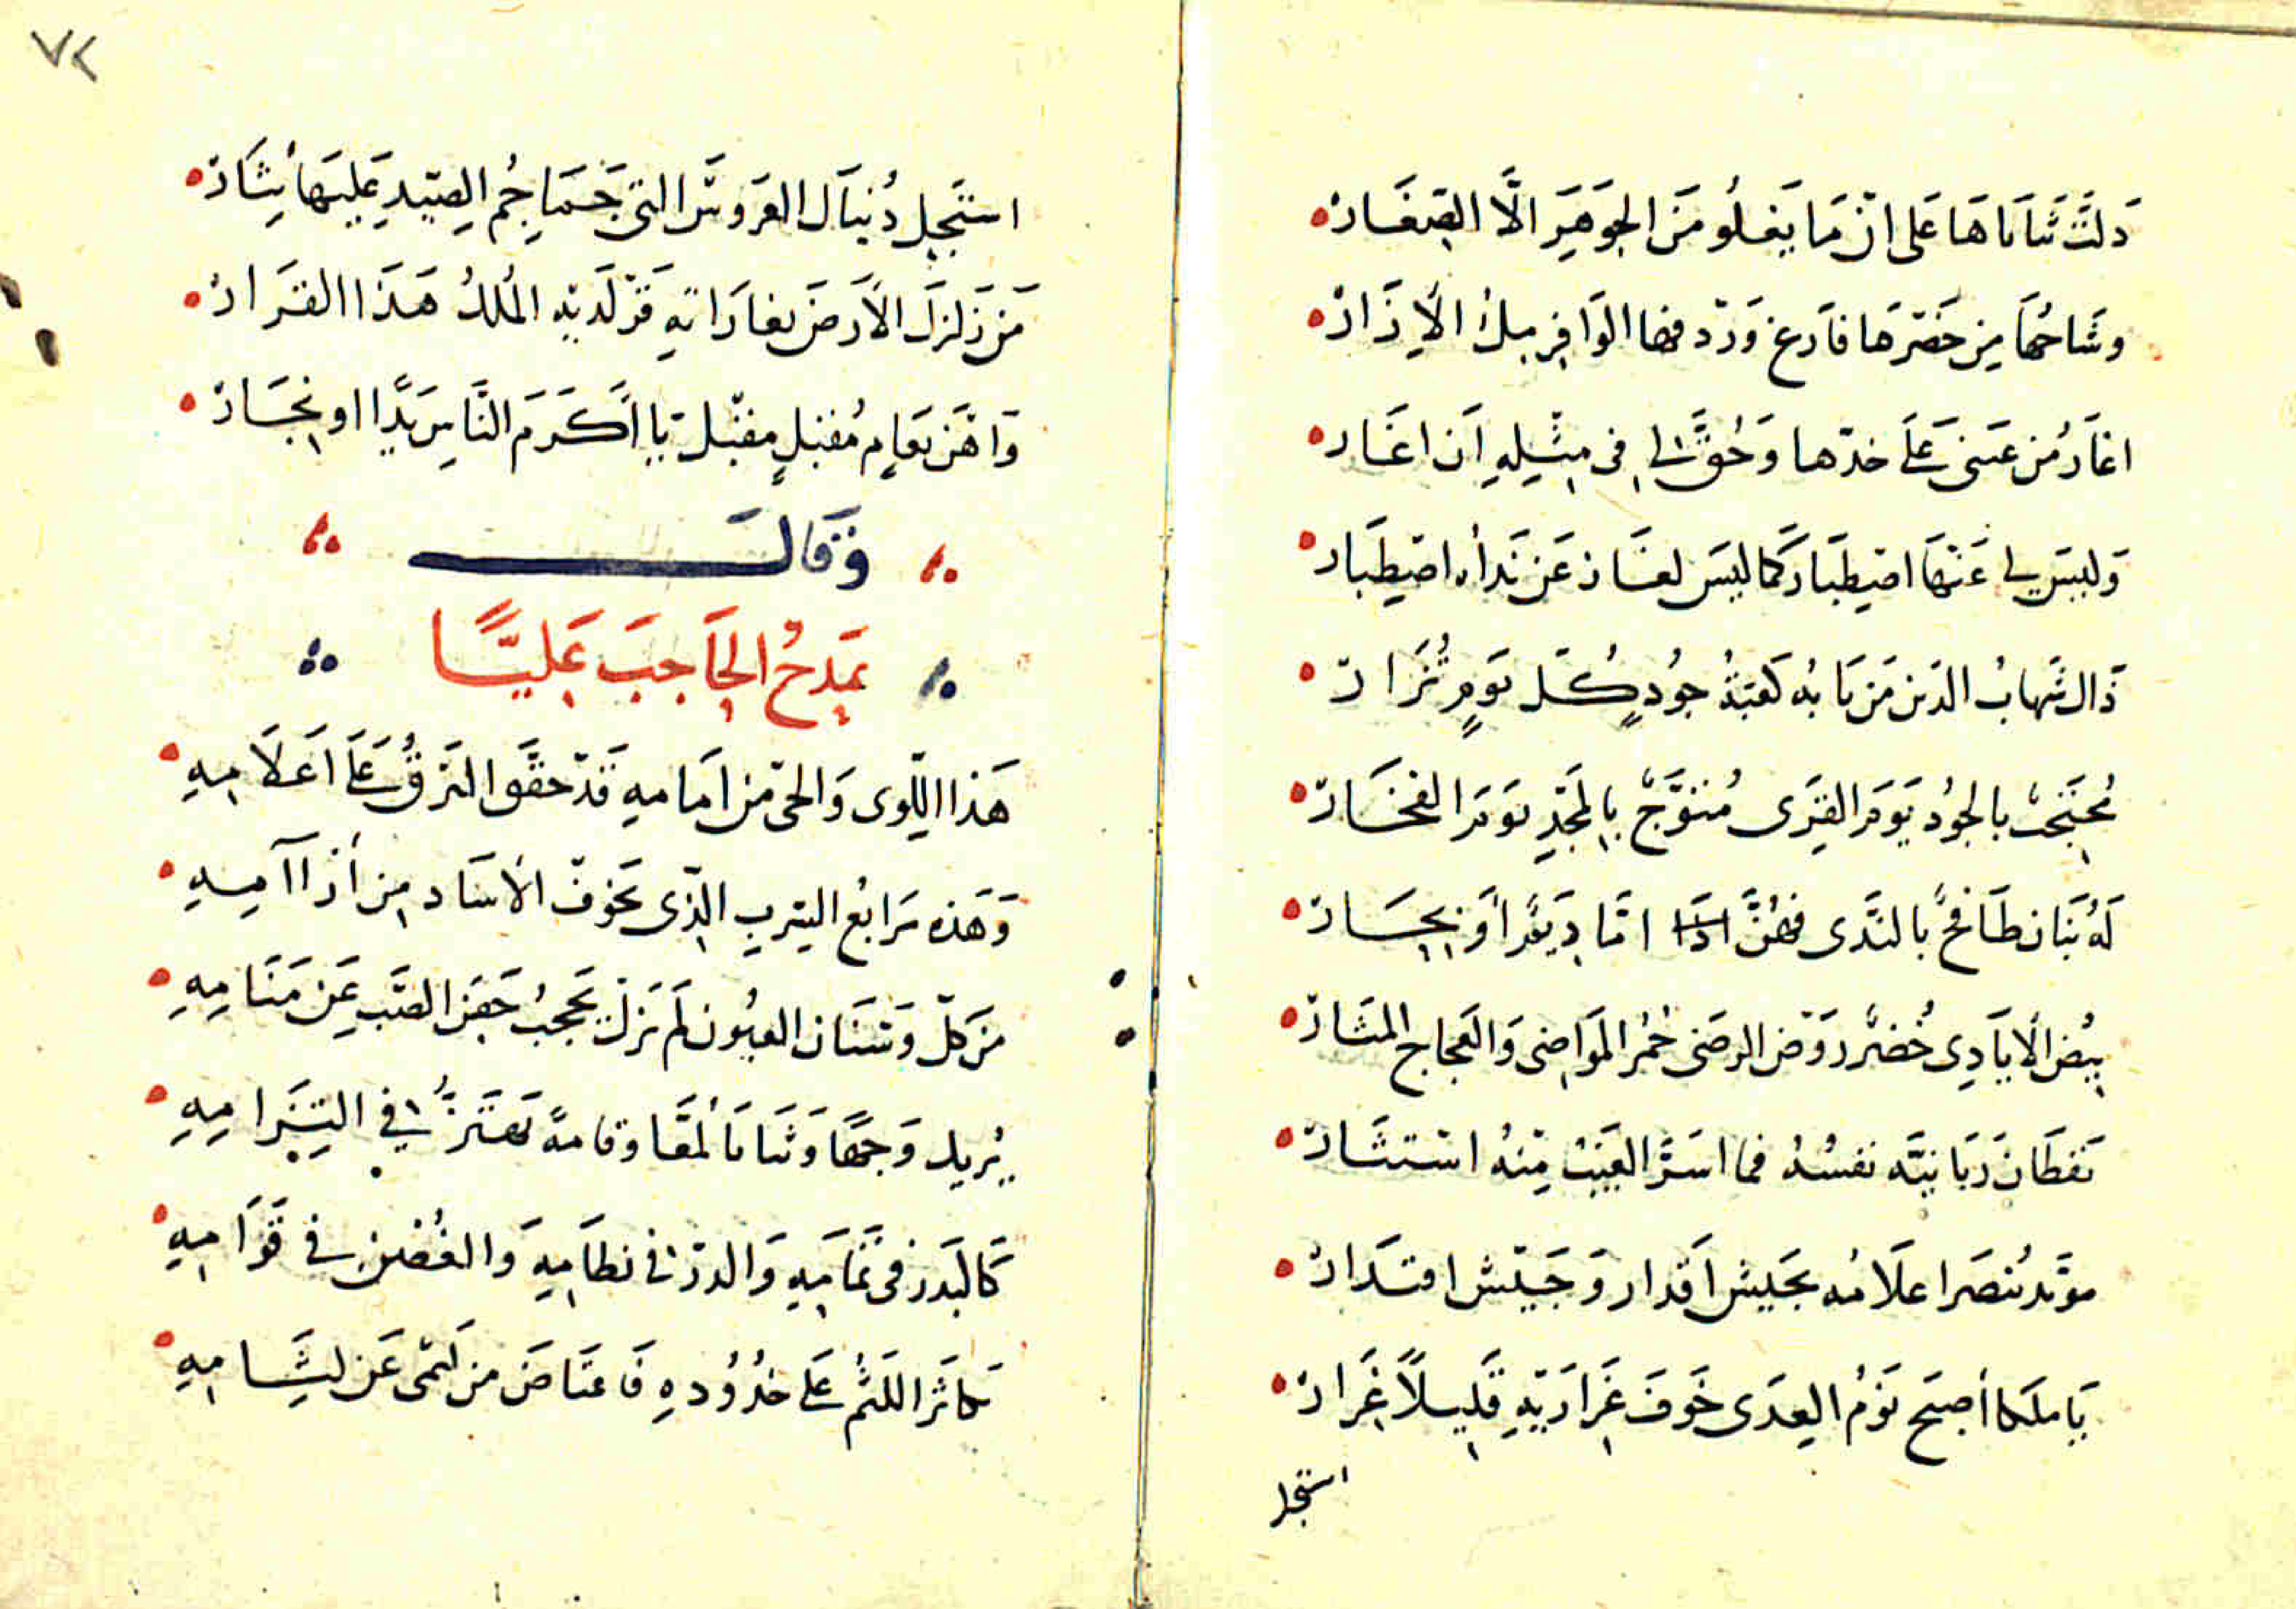 دَلَّتْ ثَنَايَاهَا عَلى انّ مَا يَغلُو مَنَ الجَوهَرِ الَّا الصّغَارْ
وشَاحُهَا مِن خَصْرهَا فارغ وَردْفها الوَافِر مِلْ الإزَارْ
اغَارُ من عَينى عَلَى خدّها وَحُقَّ لى فى مِثْلِهِ اَن اغَار
وَليسَ لى عَنهَا اصْطِبَار كَما ليسَ لغَازٍ عَن نَداه اصْطِبَار
ذَاك شهابُ الدّين مَن بَابُه كَعْبَةُ جُودٍ كُلّ يَومٍ تُزَارْ
مُحتَجِبٌ بالجُود يَومَ القِرَى مُتَوَّجٌ بِالمَجْدِ يَومَ الفخَارْ
لَهُ بَنَان طَافحٌ بالنَّدَى فَهُنَّ امّا دِيَمٌ أوْ بِحَارْ
بيضُ الأيَادِى خُضرُ رَوْض الرضَى حُمْر المَوَاضِى وَالعَجَاج المثَارْ
يَقظَان رَبَّانيّه نفسُهُ فما اسَرَّ الغَيبُ مِنهُ استَثَارْ
مؤيّد تُنصَر اعلَامُه بجَيشِ اَقدار وَجَيْش اقتدَارْ
يَا مَلِكا أصبَح نَومُ العِدَى خَوفَ غِرَارَيْهِ قَلِيلاً غِرَارْ
استجل
استَجلِ دُنيَاك العَرُوسَ التى جَمَاجِمُ الصِّيدِ عَلَيهَا نِثَارْ
مَن زَلزَلَ الأَرضَ بغارَاتهِ قَرّ لَديْهِ المُلكُ هَذَا القَرَارْ
وَاهْنَ بعَامٍ مُقبِلٍ مقبل يَا أَكرَمَ النَّاسِ يَدًا او نِجَارْ
وَقَالَ
يَمدَحُ الحَاجبَ عَليًّا
هَذا اللّوى وَالحىّ من اَمَامِهِ قَدْ خفَقَ البَرقُ عَلَى اَعلَامِهِ
وَهَذه مَرَابعُ السِّربِ الّذى تخَوفُ الأسَاد مِن أذآآمِهِ
مَن كلّ وَسْنَانِ العيُونِ لَم يَزلْ يَحجبُ جَفنَ الصَّب عَن مَنَامِهِ
يُريك وَجهًا وَثنَايَا لُمّعَا وقَامةً تهتَزُّ فى التِزَامِهِ
كَالبَدر فى تمَامِهِ وَالدرّ فى نظَامِهِ وَالغُصْنِ فى قَوَامِهِ
تكَاثَر اللَثْمُ عَلى خدُودهِ فَاعتَاضَ من لَثمى عَن لِثَامِهِ